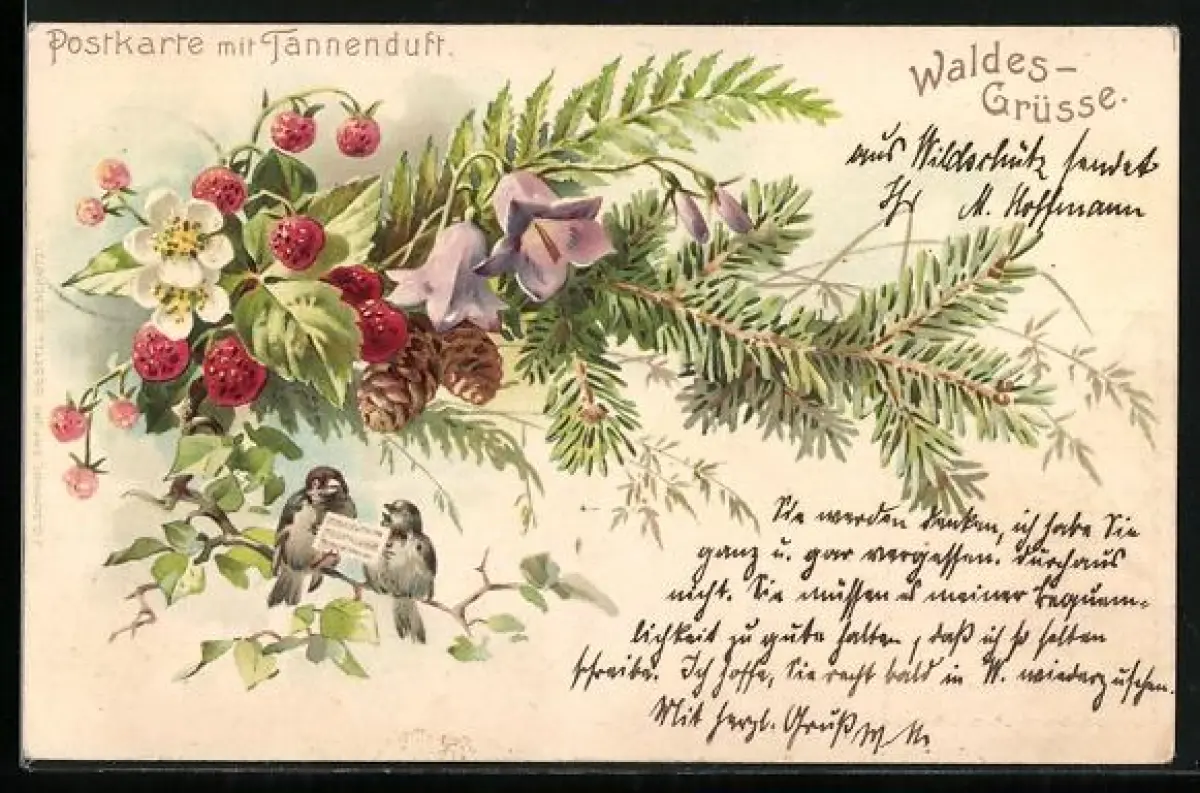 Postkarte mit Tannenduft.
Waldes-
Grüsse.
aus sendet
Ihr M. Hoffmann
Sie werden denken, ich habe Sie
ganz u. gar vergessen. Durchaus
nicht. Sie müssen es meiner Bequem-
lichkeit zu gute halten, daß ich so selten
schreibe. Ich hoffe, Sie recht bald in W. wiederzusehen.
Mit herzl. Gruß